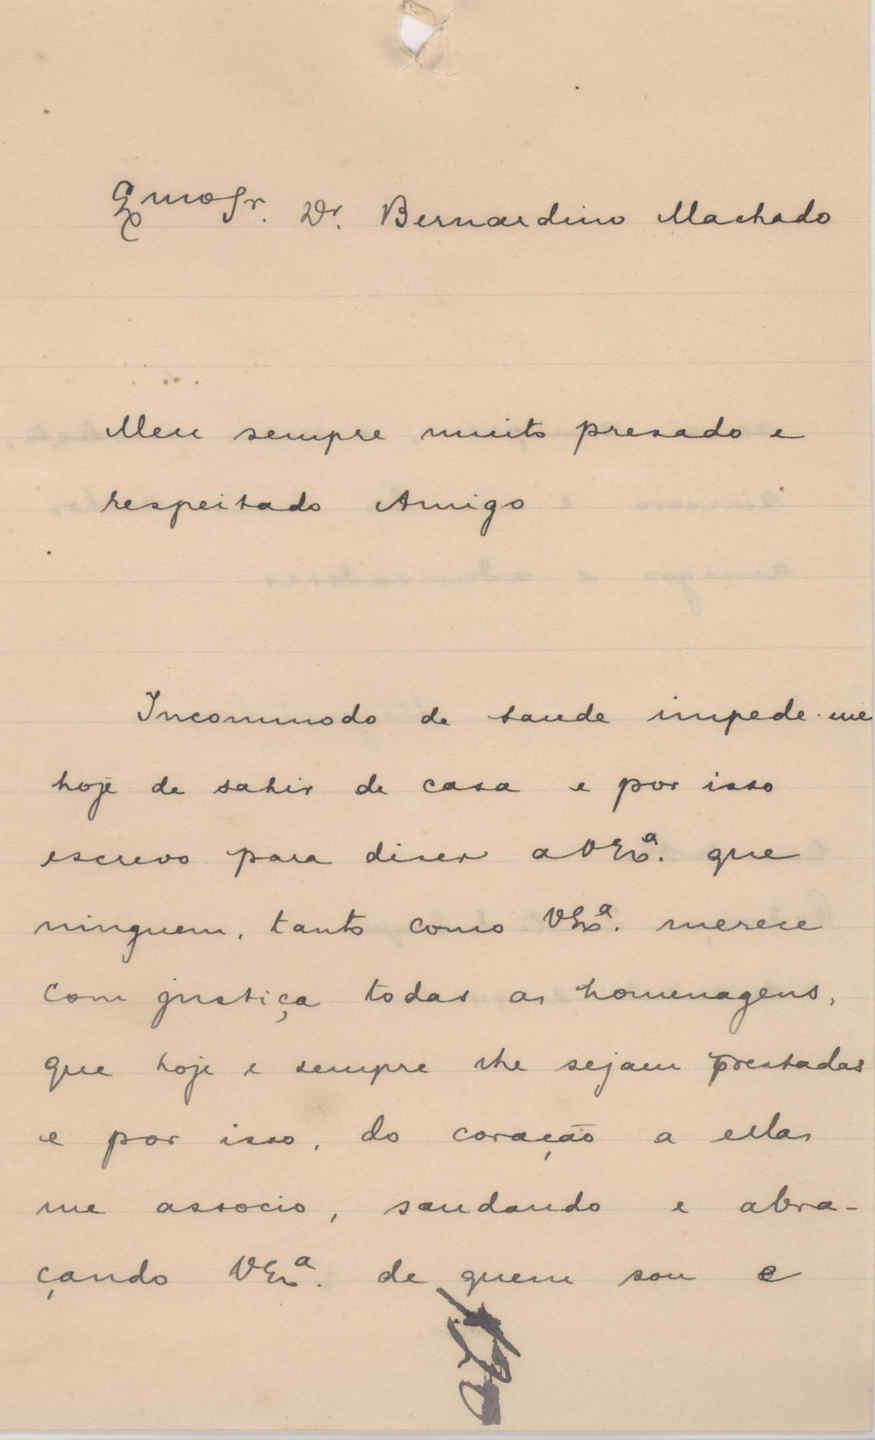 Exmo Sr. Dr. Bernardino Machado
Meu sempre muito presado e
respeitado Amigo
Incommodo de saude impede-me
hoje de sahir de casa e por isso
escrevo para diser a VExª. que
ninguem, tanto como VExª. merece
com justiça todas as homenagens,
que hoje e sempre lhe sejam prestadas
e por isso, do coração a ellas
me associo, saudando e abra-
çando VExª. de quem sou e